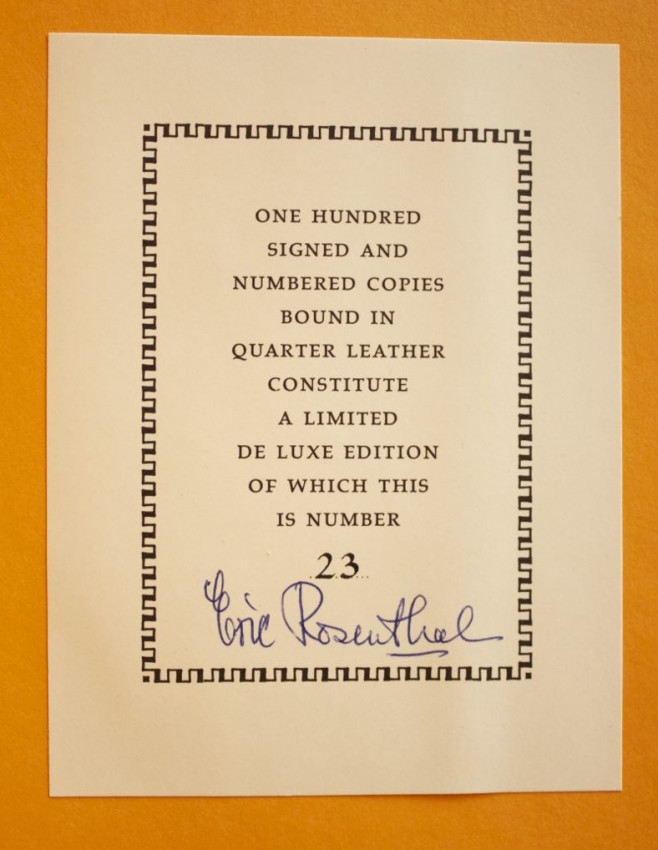 ONE HUNDRED
SIGNED AND
NUMBERED COPIES
BOUND IN
QUARTER LEATHER
CONSTITUTE
A LIMITED
DE LUXE EDITION
OF WHICH THIS
IS NUMBER
23
Eric Rosenthal